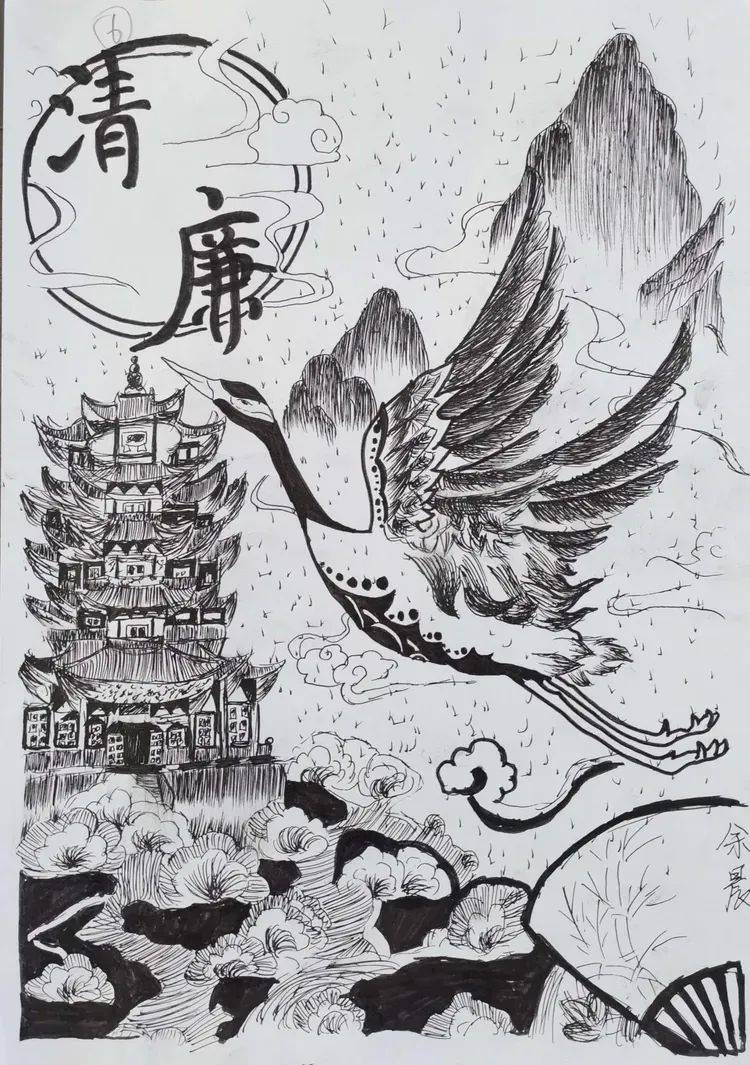 6
清廉
余晨